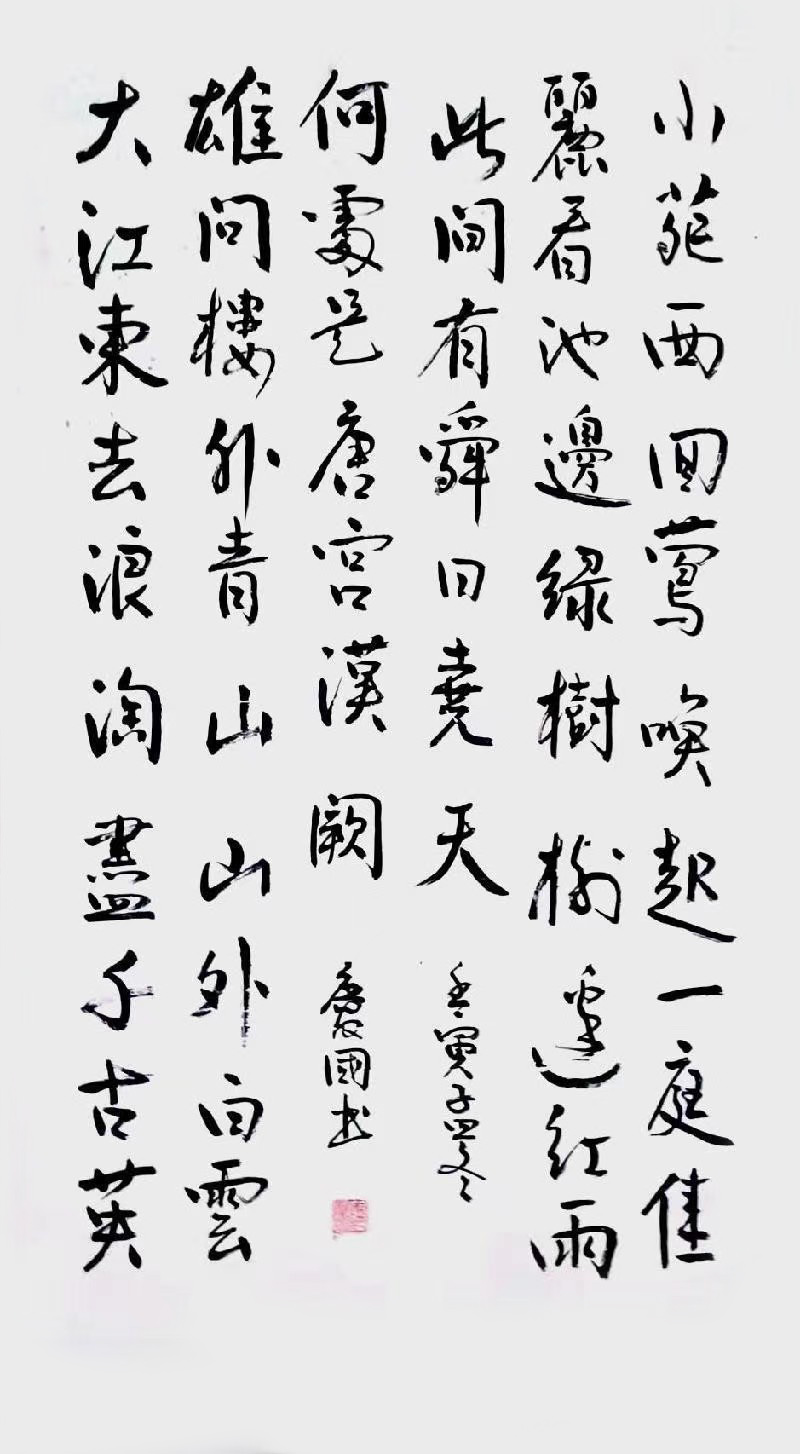 小苑西回鶯喚起一庭佳
麗看池邊綠樹樹邊紅雨
此間有舜日堯天
壬寅孟冬
大江東去浪淘盡千古英
雄問樓外青山山外白雲
何處是唐宮漢闕
慶國书